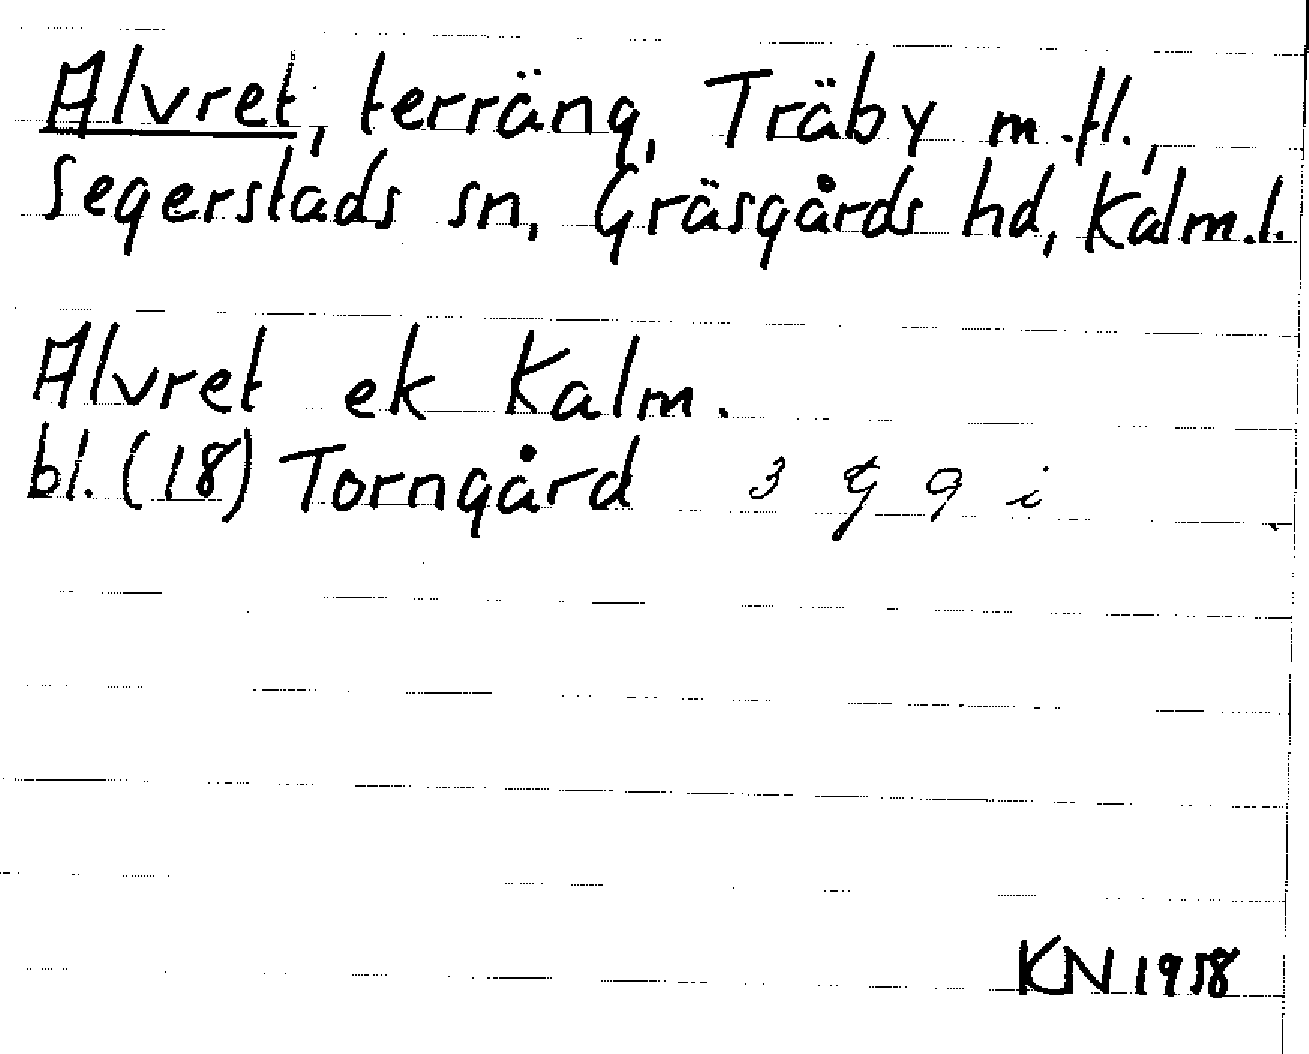 Alvret, terräng, Träby m.fl.,
Segerstads sn, Gräsgårds hd, Kalm.l.
Alvret ek Kalm.
bl. (18) Torngård 3 G 9 i
KN 1958